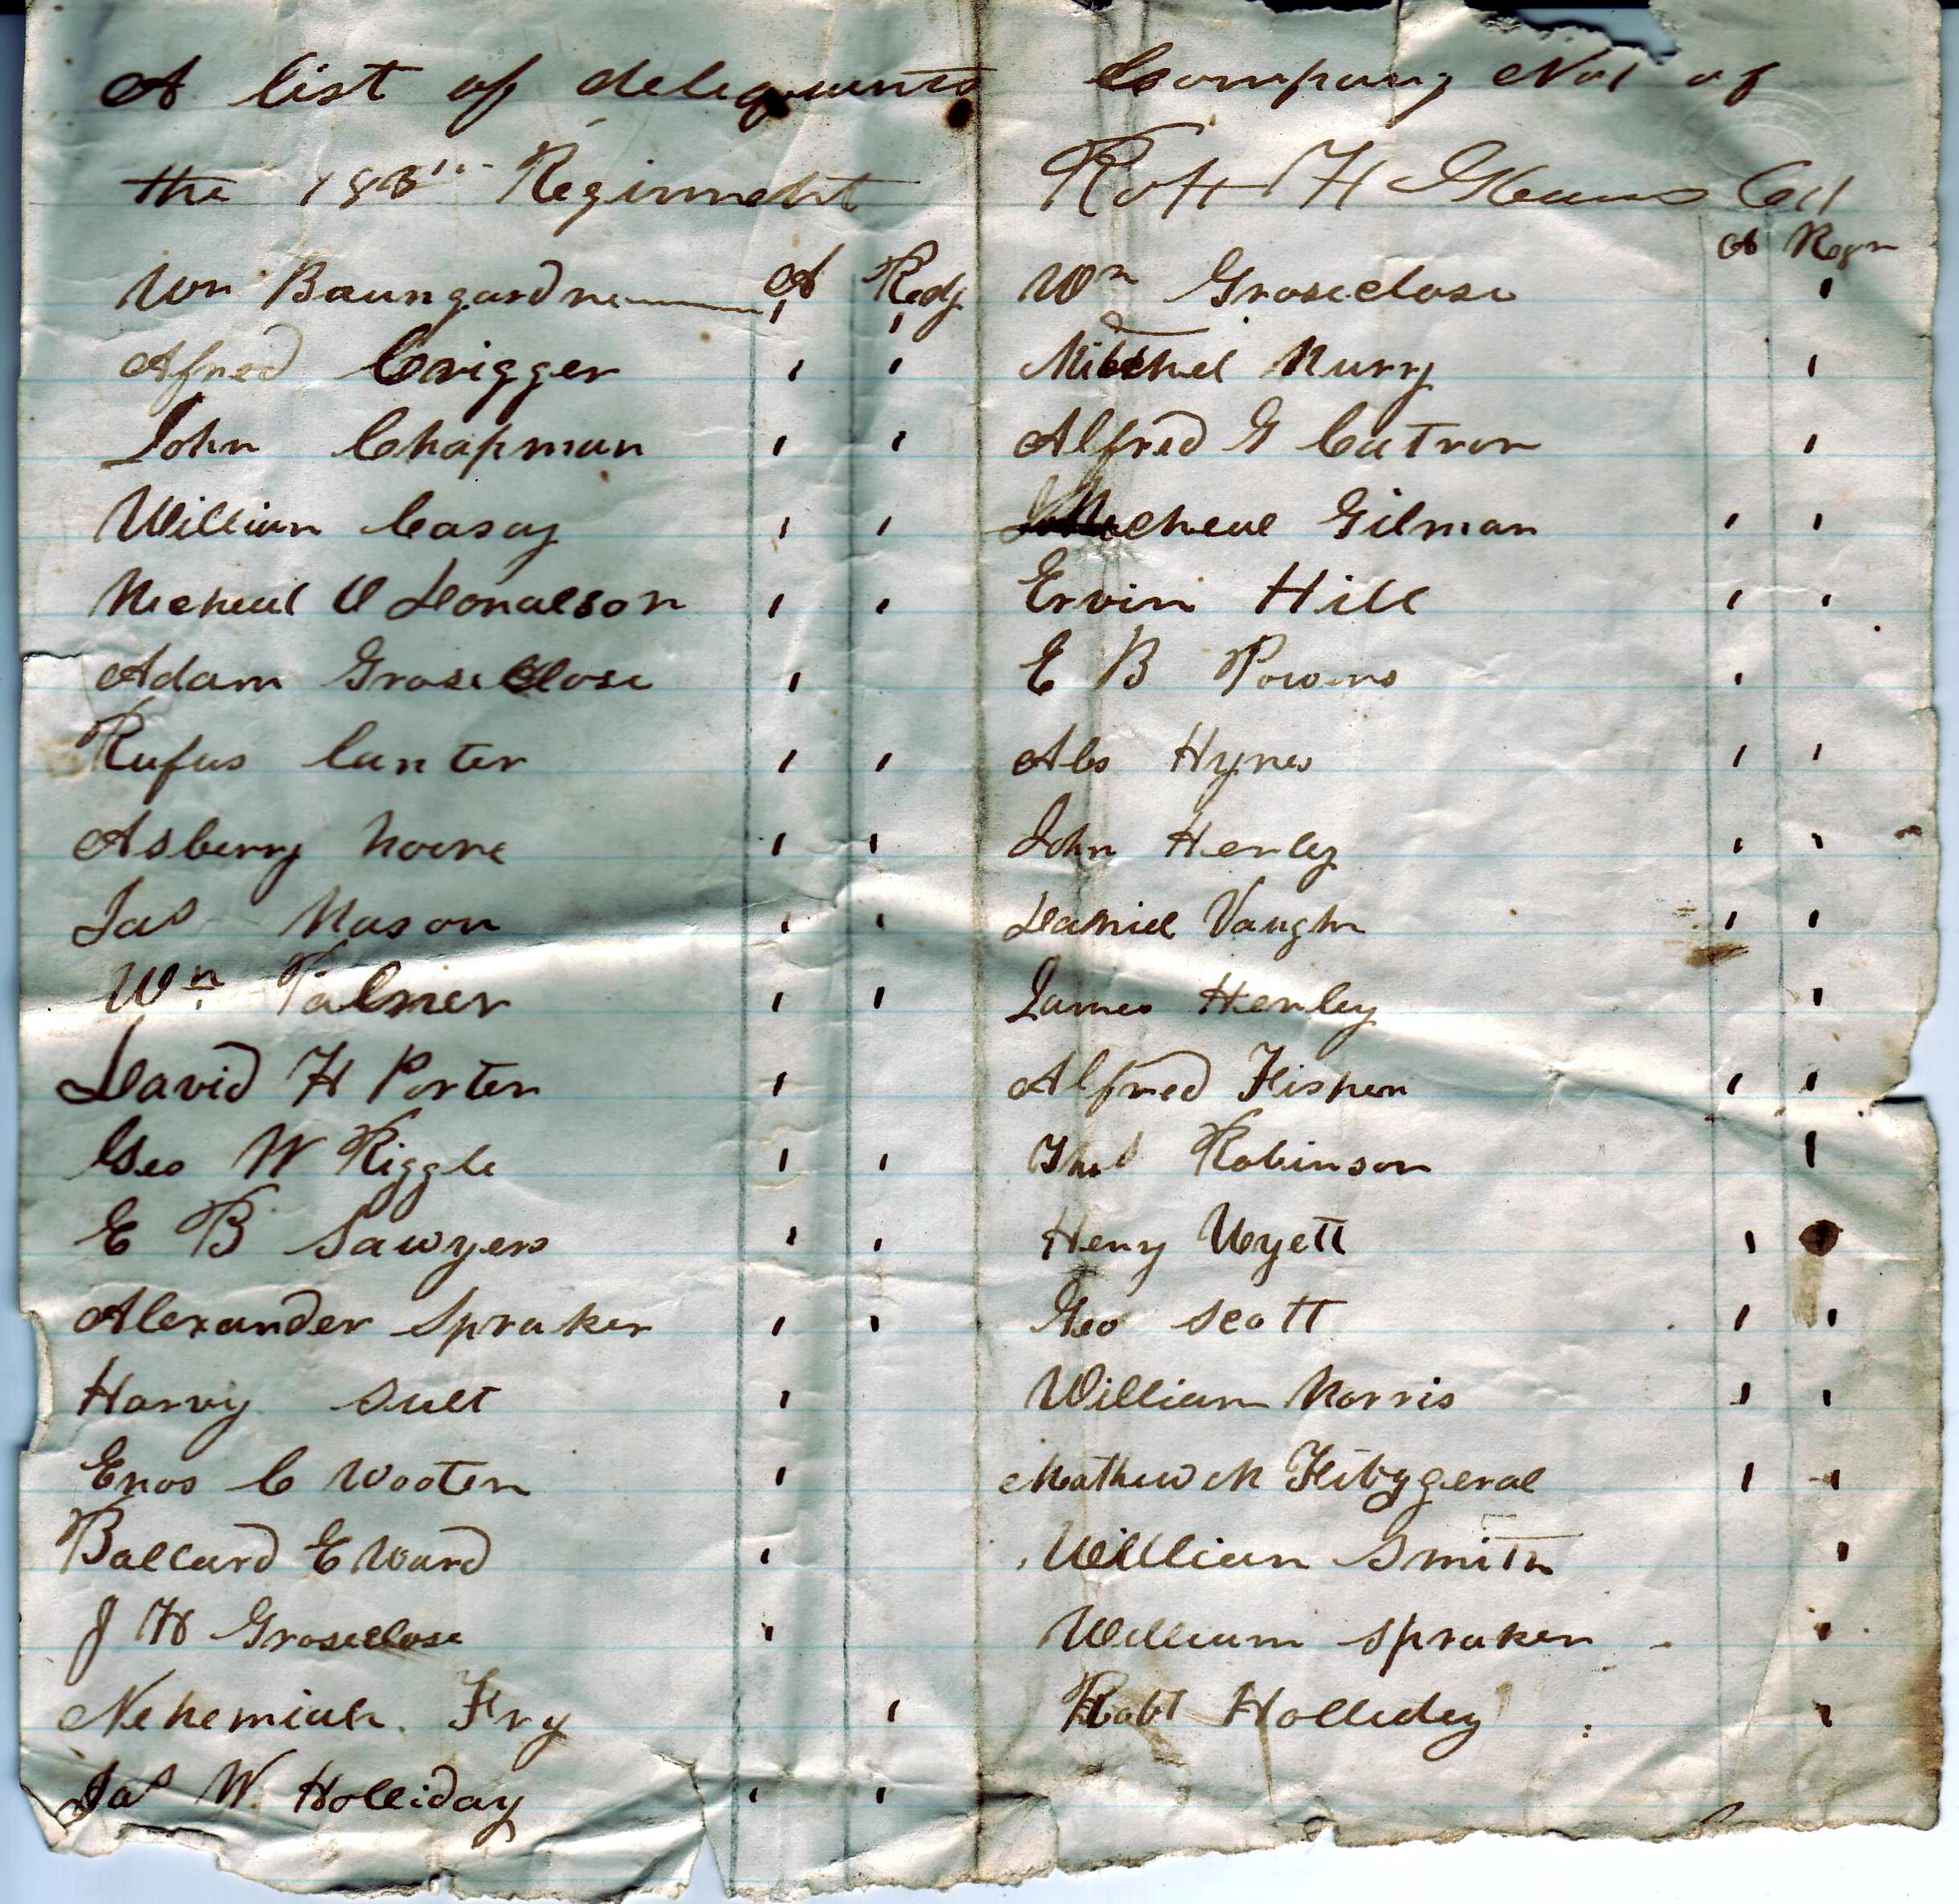 A list of delequents Company No 1 of
the 183 Regimment
A Regr
Wm Baungardner A Redg
Alfred Crigger
John Chapman
William Casay
Micheal O Donalson
Adam Groseclose
Rufus Canter
Asberry Moore
Jas Mason
Wm Palmer
David H Porter
Geo W Riggle
E B Sawyers
Alexander Spraker
Harvy Sult
Enos C Wooten
Ballard E Ward
J H Groseclose
Nehemiah Fry
Jas W. Holliday
Wm Groseclose
Mitchel Murry
Alfred G Catron
Micheal Gilman
Ervin Hill
E B Powers
Abs Hynes
John Henley
Daniel Vaughn
James Henley
Alfred Fisher
Robinson
Heny Wyett
Geo Scott
William Norris
Mathew M Fitzgeral
William Smith
William Spraker
Robt Holliday